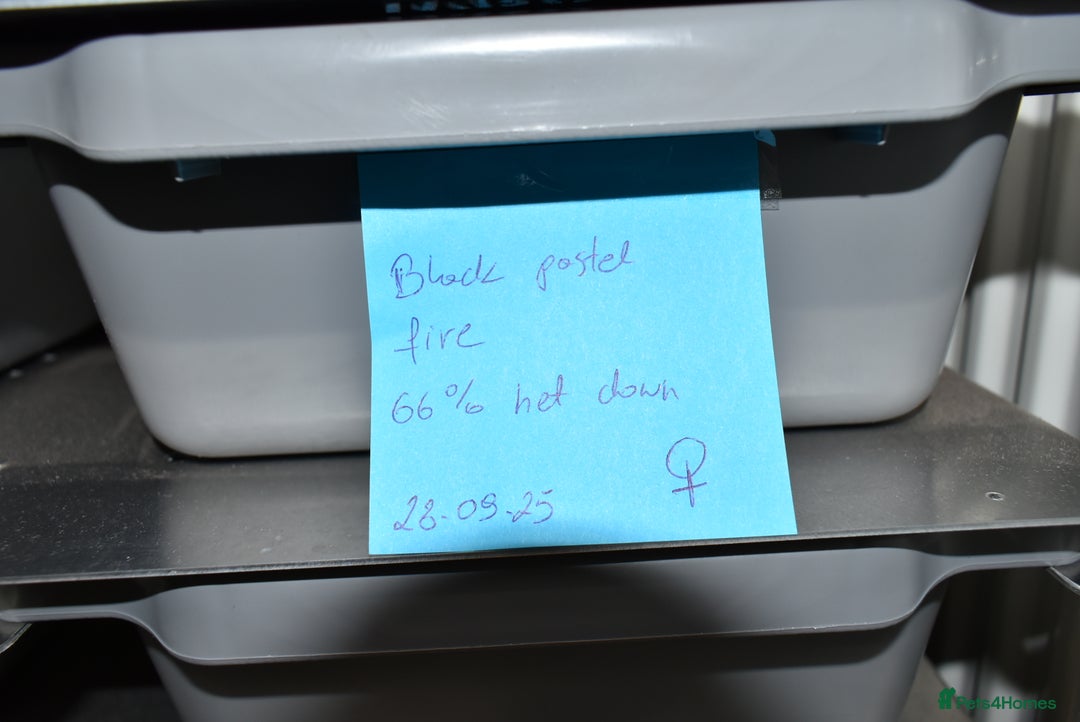 Black pastel
fire
66% het clown
♀
28-09-25
Pets4Homes